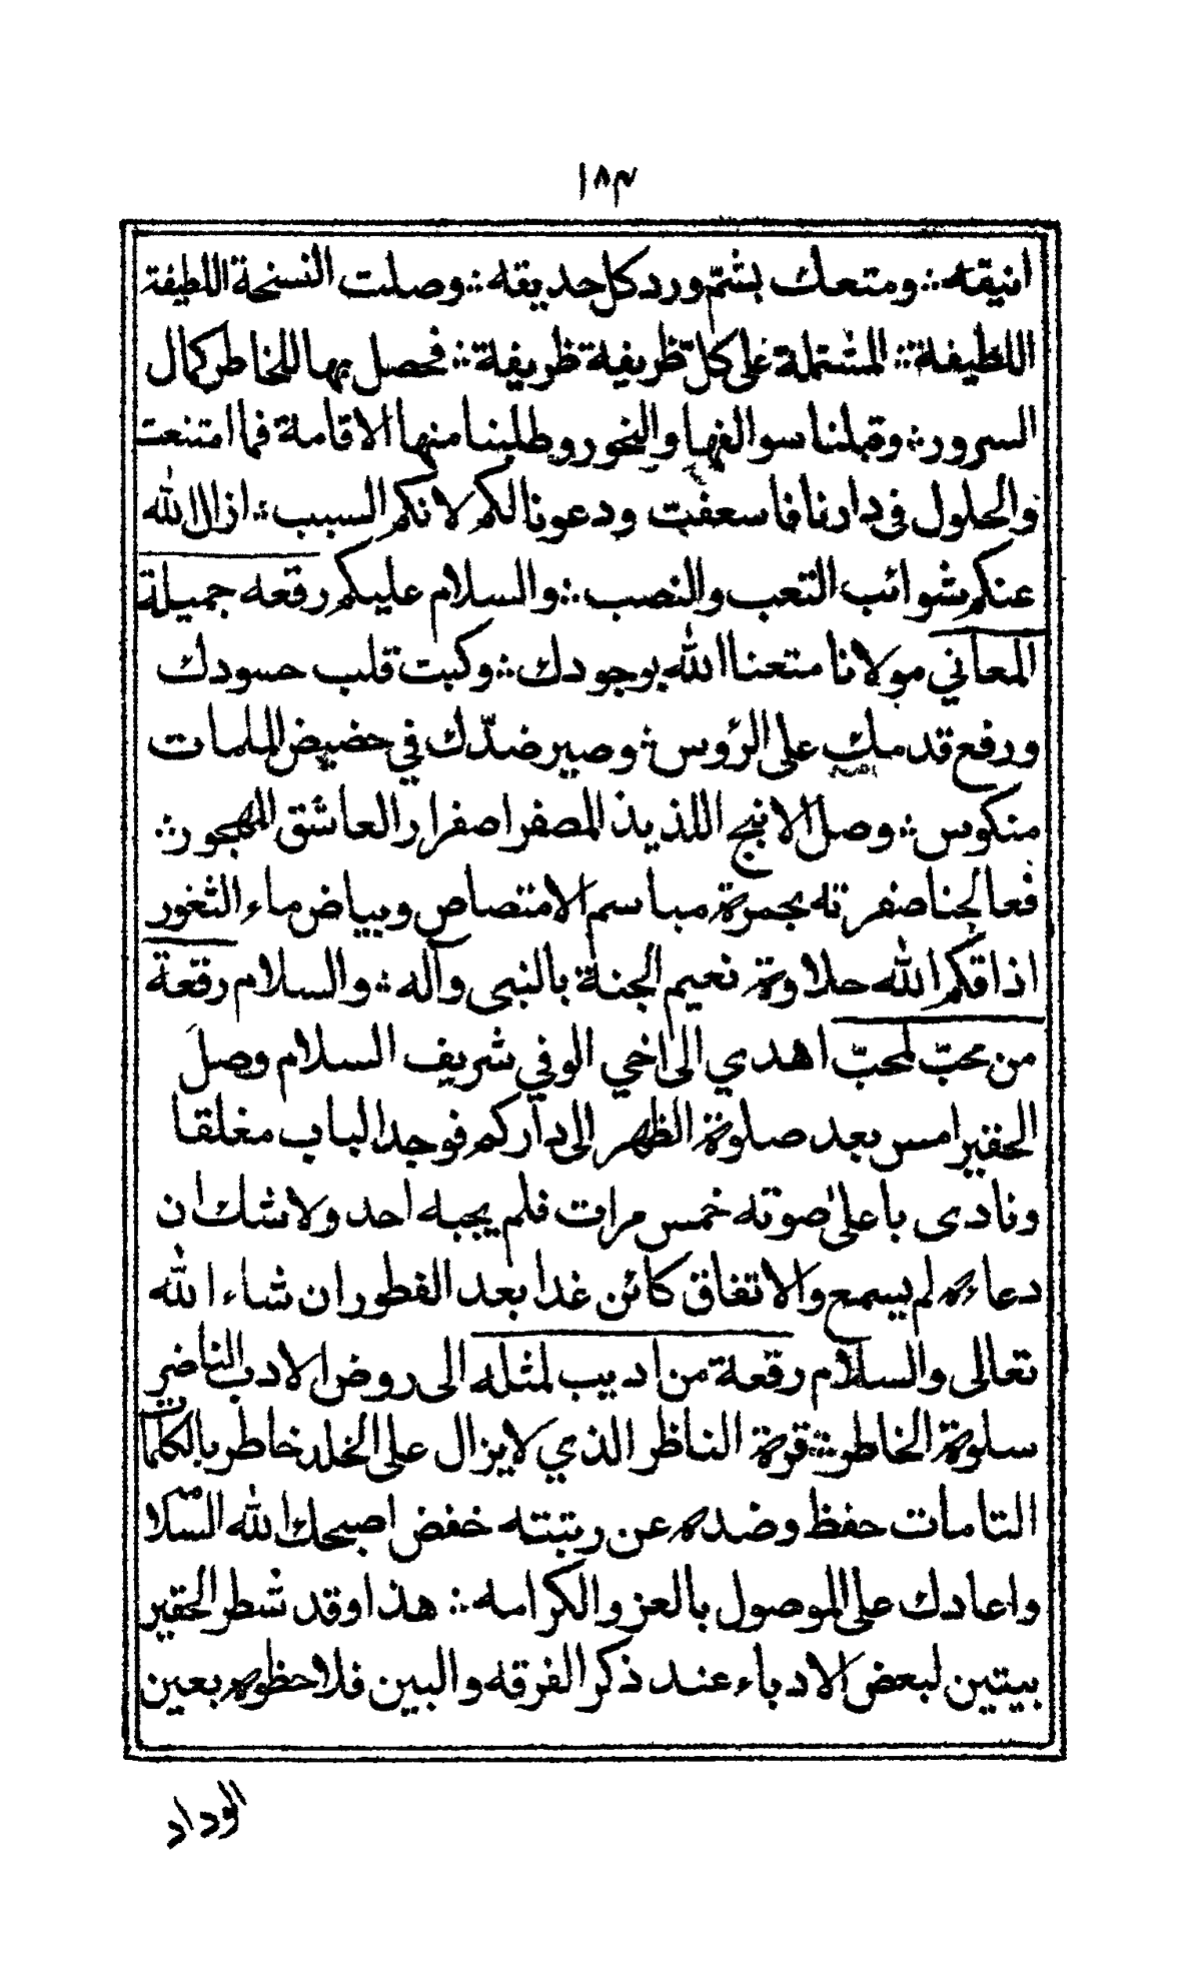 ١٨٣
انيقه ∴ ومتعك بشمّ ورد كل حديقه ∴ وصلت النسخة اللطيفة
اللطيفة ∴ المشتملة على كلّ ظريفة ظريفة ∴ فحصل بها للخاطر كمال
السرور ∴ وقبلنا سوالفها والنحور وطلبنا منها الاقامة فما امتنعت
والحلول فى دارنا فاسعفت ودعونا لكم لانكم السبب ∴ ازال الله
عنكم شوائب التعب والنصب ∴ والسلام عليكم رقعه جميلة
المعاني مولانا متعنا الله بوجودك ∴ وكبت قلب حسودك
ورفع قدمك على الرؤس ∴ وصير ضدّك في حضيض الملمات
منكوس ∴ وصل الانبج اللذيذ المصفر اصفرار العاشق المهجور ∴
فعالجنا صفرته بحمرة مباسم الامتصاص وبياض ماء الثغور
اذاقكم الله حلاوة نعيم الجنة بالنبى وآله ∴ والسلام رقعة
من محبّ لمحبّ اهدي الى اخي الوفي شريف السلام وصل
الحقير امس بعد صلوة الظهر الى داركم فوجد الباب مغلقا
ونادى باعلى صوته خمس مرات فلم يجبه احد ولاشك ان
دعاءه لم يسمع والاتفاق كائن غدا بعد الفطور ان شاء الله
تعالى والسلام رقعة من اديب لمثله الى روض الادب الناضر
سلوة الخاطر ∴ قرة الناظر الذي لايزال على الخلد خاطر بالكلمات
التامات حفظ وضده عن رتبته خفض اصبحك الله السّلامه
واعادك على الموصول بالعز والكرامه ∴ هذا وقد شطر الحقير
بيتين لبعض الادباء عند ذكر الفرقه والبين فلاحظوه بعين
الوداد